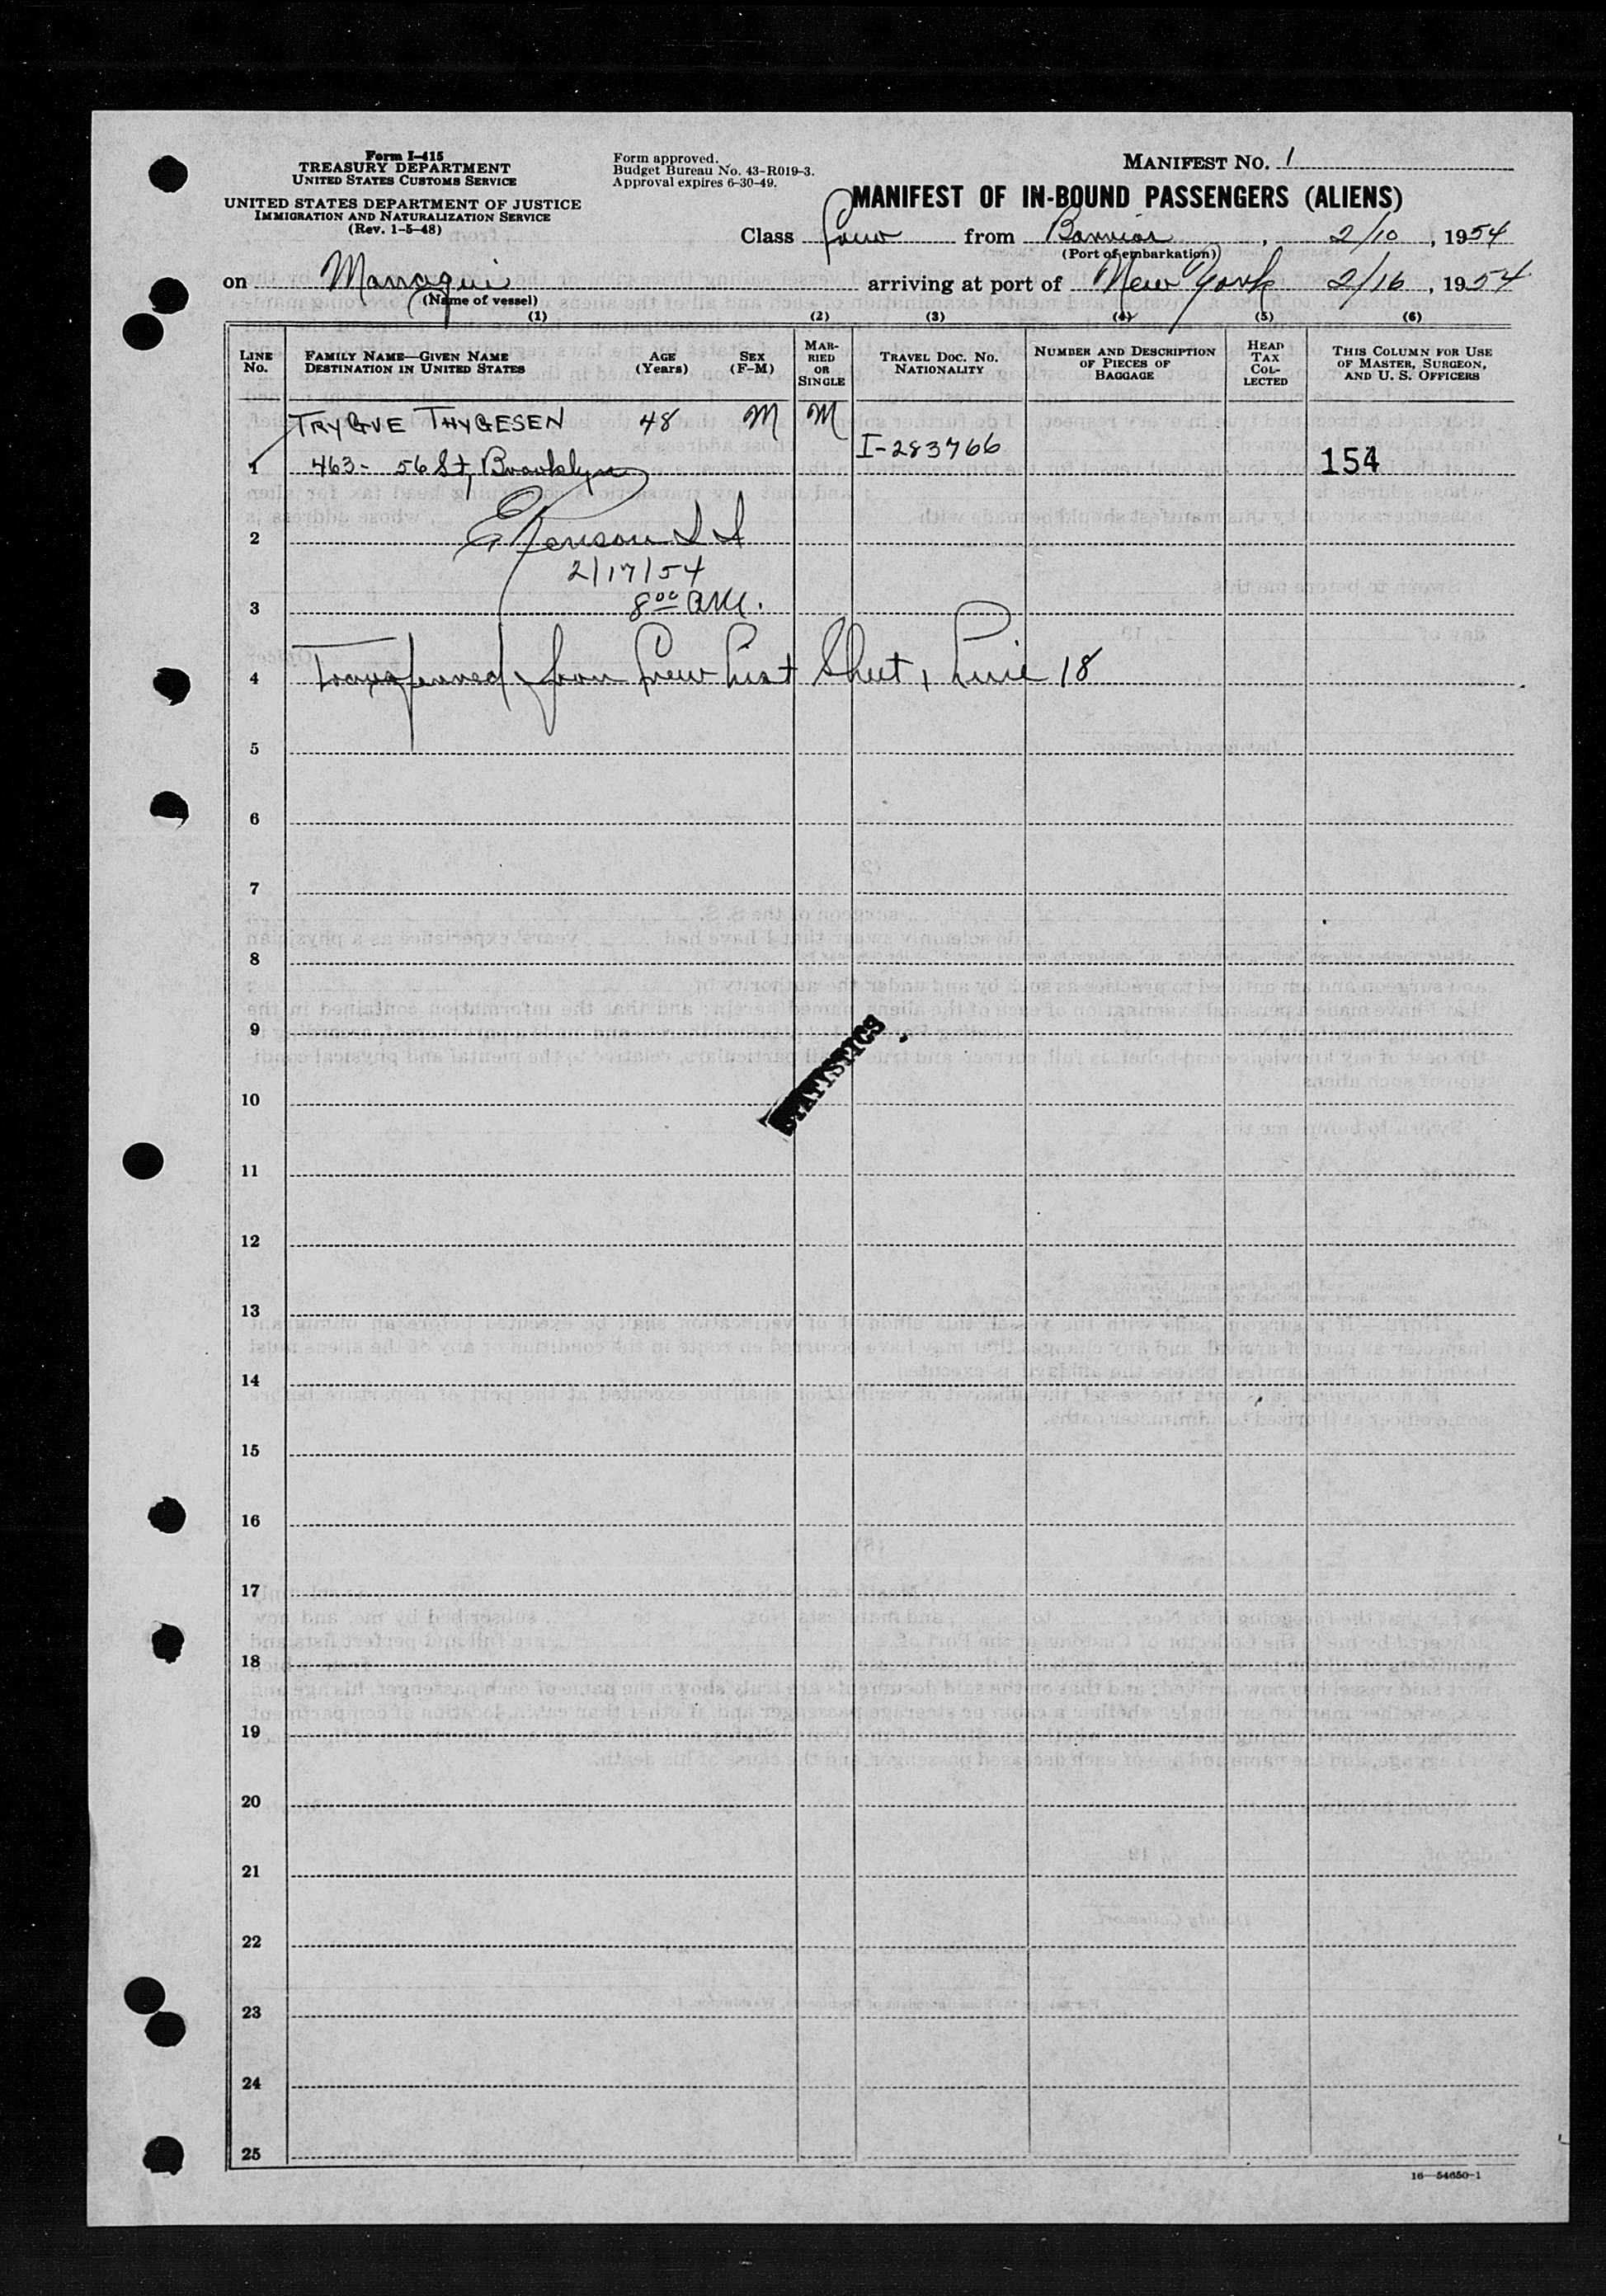 Form I-415
TREASURY DEPARTMENT
UNITED STATES CUSTOMS SERVICE
UNITED STATES DEPARTMENT OF JUSTICE
IMMIGRATION AND NATURALIZATION SERVICE
(Rev. 1-5-48)
Form approved.
Budget Bureau No. 43-R019-3.
Approval expires 6-30-49.
MANIFEST NO. 1
MANIFEST OF IN-BOUND PASSENGERS (ALIENS)
Class Crew from , 2/10, 1954
(Port of embarkation)
on arriving at port of New York 2/16, 1954
(Name of vessel)
(1) (2) (3) (4) (5) (6)
LINE No.
FAMILY NAME—GIVEN NAME DESTINATION IN UNITED STATES
AGE (Years)
SEX (F-M)
MARRIED OR SINGLE
TRAVEL DOC. NO. NATIONALITY
NUMBER AND DESCRIPTION OF PIECES OF BAGGAGE
HEAD TAX COLLECTED
THIS COLUMN FOR USE OF MASTER, SURGEON, AND U. S. OFFICERS
TRYGVE THYGESEN 48 M M
I-283766
1 463- 56 St, Brooklyn 154
2
2/17/54
3 800 AM.
4 Transferred from Crew List Sheet 1 Line 18
5
6
7
8
9
STATISTICS
10
11
12
13
14
15
16
17
18
19
20
21
22
23
24
25
16—54650-1